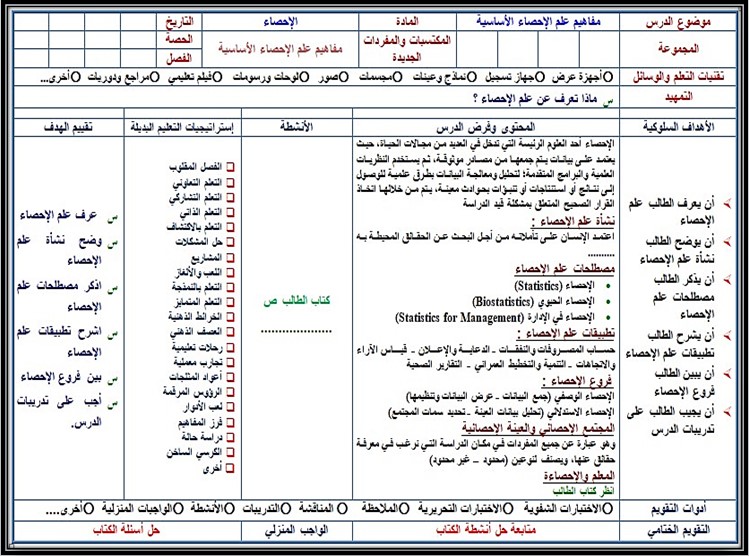 موضوع الدرس مفاهيم علم الإحصاء الأساسية المادة الإحصاء التاريخ
المجموعة المكتسبات والمفردات الجديدة مفاهيم علم الإحصاء الأساسية الحصة
الفصل
تقنيات التعلم والوسائل Oأجهزة عرض Oجهاز تسجيل Oنماذج وعينات Oمجسمات Oصور Oلوحات ورسومات Oفيلم تعليمي Oمراجع ودوريات Oأخرى...
التمهيد س ماذا تعرف عن علم الإحصاء ؟
الأهداف السلوكية المحتوى وفرض الدرس الأنشطة إستراتيجيات التعليم البديلة تقييم الهدف
أن يعرف الطالب علم
الإحصاء
أن يوضح الطالب
نشأة علم الإحصاء
أن يذكر الطالب
مصطلحات علم
الإحصاء
أن يشرح الطالب
تطبيقات علم الإحصاء
أن يبين الطالب
فروع الإحصاء
أن يجيب الطالب على
تدريبات الدرس
الإحصاء أحد العلوم الرئيسة التي تدخل في العديد من مجالات الحياة، حيث
يعتمد على بيانات يتم جمعها من مصادر موثوقة، ثم يستخدم النظريات
العلمية والبرامج المتقدمة؛ لتحليل ومعالجة البيانات بطرق علمية للوصول
إلى نتائج أو استنتاجات أو تنبؤات بحوادث معينة، يتم من خلالها اتخاذ
القرار الصحيح المتعلق بمشكلة قيد الدراسة
نشأة علم الإحصاء :
اعتمد الإنسان على تأملاته من أجل البحث عن الحقائق المحيطة به
..........
مصطلحات علم الإحصاء
الإحصاء (Statistics)
الإحصاء الحيوي (Biostatistics)
الإحصاء في الإدارة (Statistics for Management)
تطبيقات علم الإحصاء :
حساب المصروفات والنفقات - الدعاية والإعلان - قياس الآراء
والاتجاهات - التنمية والتخطيط العمراني - التقارير الصحية
فروع الإحصاء :
الإحصاء الوصفي (جمع البيانات - عرض البيانات وتنظيمها)
الإحصاء الاستدلالي (تحليل بيانات العينة - تحديد سمات المجتمع)
المجتمع الإحصائي والعينة الإحصائية
وهو عبارة عن جميع المفردات في مكان الدراسة التي نرغب في معرفة
حقائق عنها، ويصنف لنوعين (محدود - غير محدود)
المعلم والإحصاءة
انظر كتاب الطالب
كتاب الطالب ص
....................
الفصل المقلوب
التعلم التعاوني
التعلم التشاركي
التعلم الذاتي
التعلم بالاكتشاف
حل المشكلات
المشاريع
اللعب والألغاز
التعلم بالنمذجة
التعلم المتمايز
الخرائط الذهنية
العصف الذهني
رحلات تعليمية
تجارب معملية
أعواد المثلجات
الرؤوس المرقمة
لعب الأدوار
فرز المفاهيم
دراسة حالة
الكرسي الساخن
أخرى
س عرف علم الإحصاء
س وضح نشأة علم
الإحصاء
س اذكر مصطلحات علم
الإحصاء
س اشرح تطبيقات علم
الإحصاء
س بين فروع الإحصاء
س أجب على تدريبات
الدرس.
أدوات التقويم Oالاختبارات الشفوية Oالاختبارات التحريرية Oالملاحظة Oالمناقشة Oالتدريبات Oالأنشطة Oالواجبات المنزلية Oأخرى....
التقويم الختامي متابعة حل أنشطة الكتاب الواجب المنزلي حل أسئلة الكتاب